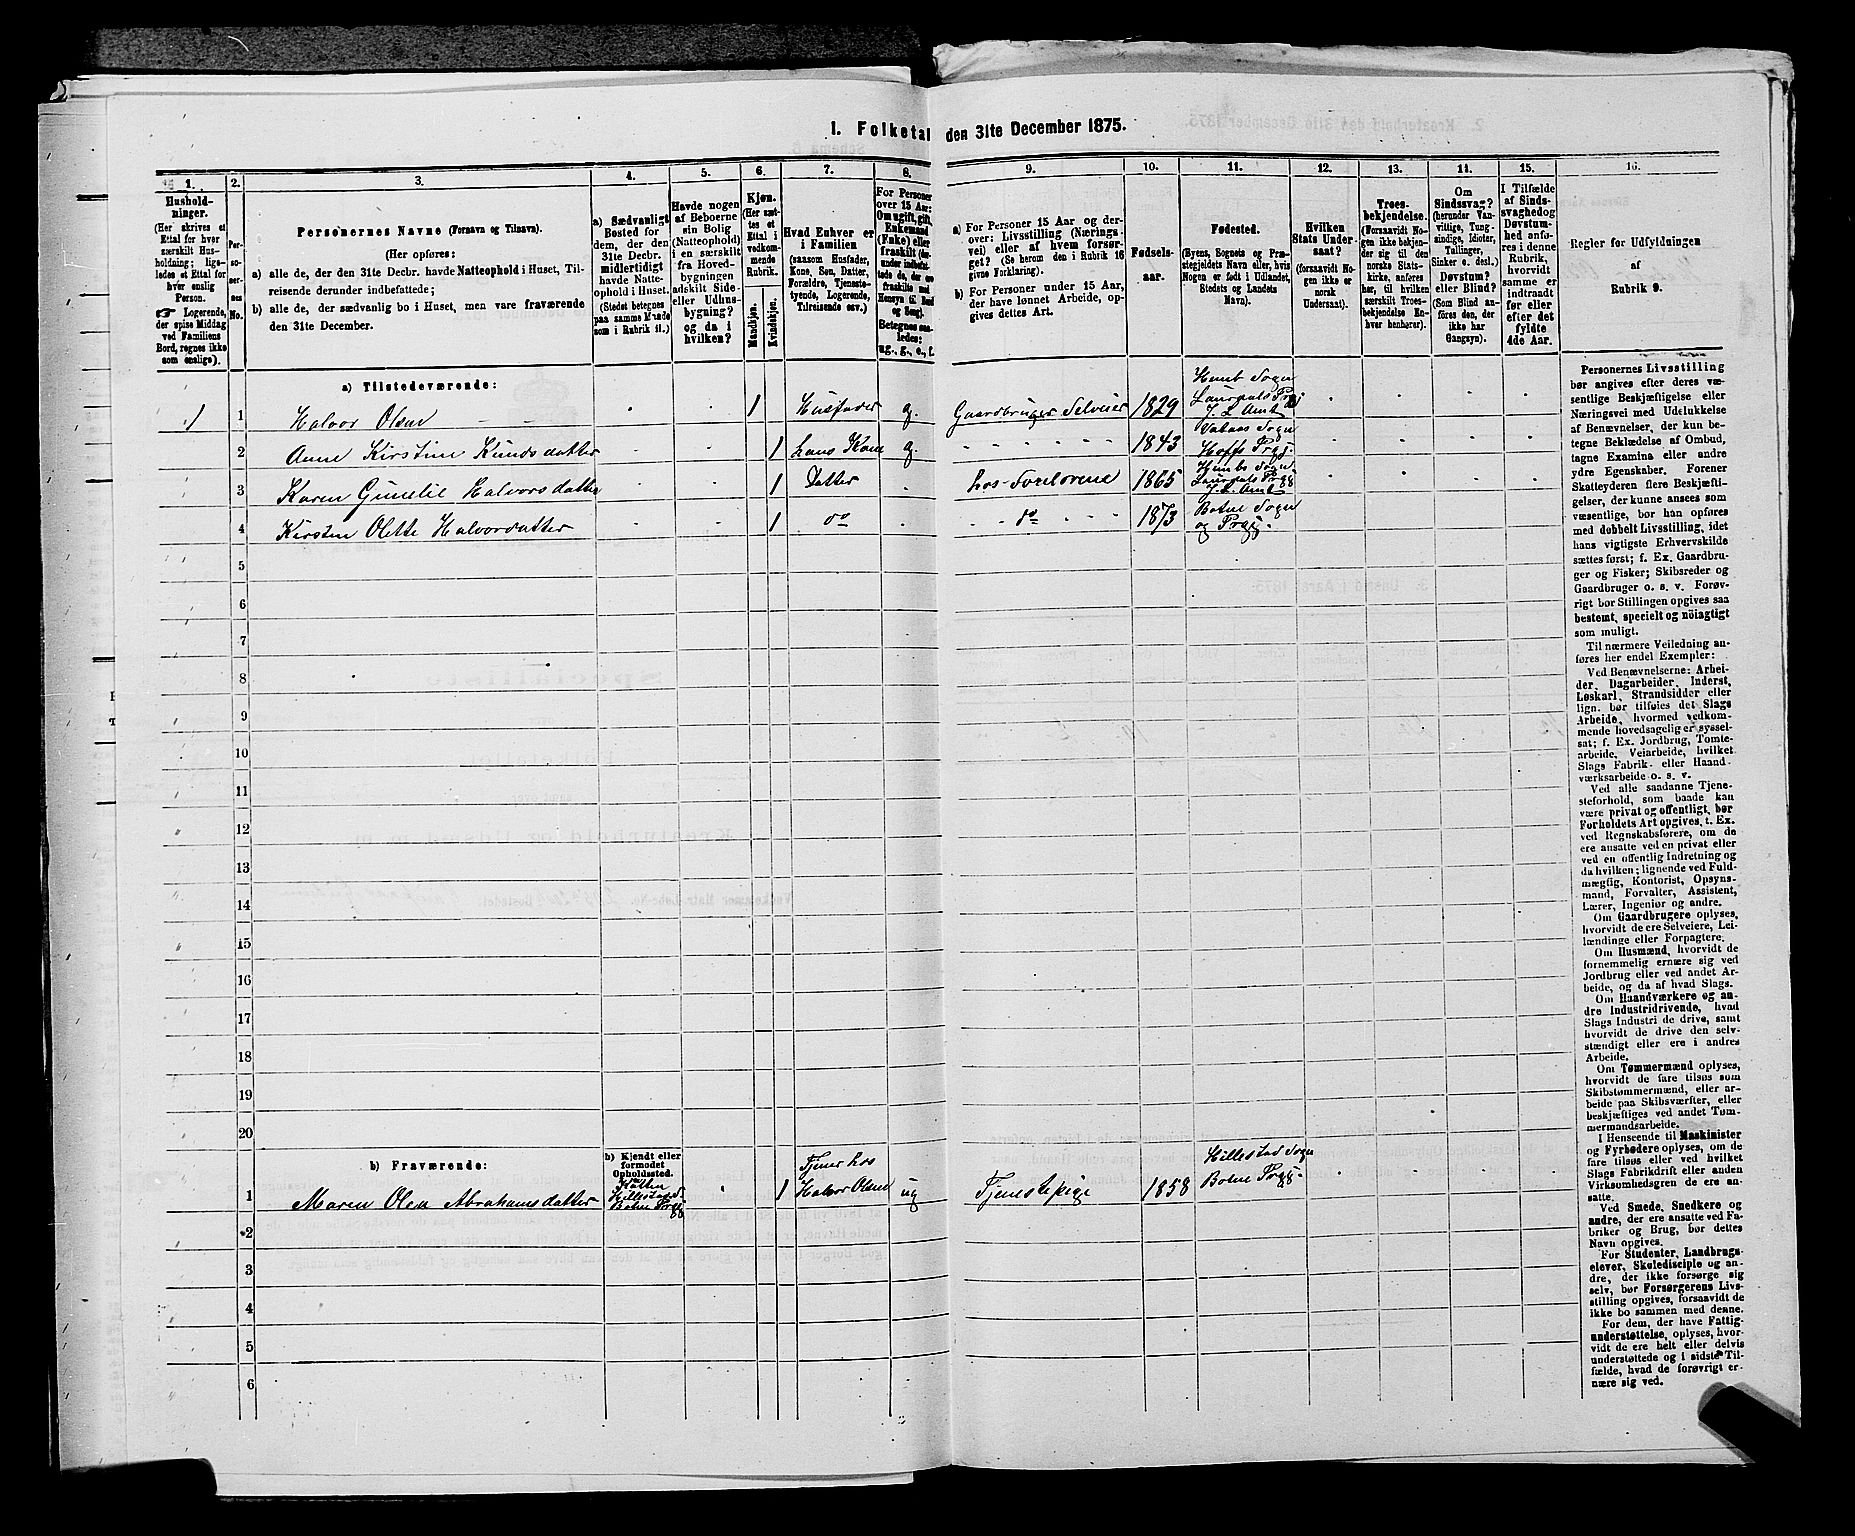 I. Folketal den 31te December 1875.
1. 2. 3. 4. 5. 6. 7. 8. 9. 10. 11. 12. 13. 14. 15. 16.
Hushold-
ninger.
(Her skrives et
Ettal for hver
særskilt Hus-
holdning; lige-
ledes et Ettal for
hver enslig
Person.
☛ Logerende,
der spise Middag
ved Familiens
Bord, regnes ikke
som enslige).
Per-
so-
ner-
nes
No.
Personernes Navne (Fornavn og Tilnavn).
(Her opføres:
a) alle de, der den 31te Decbr. havde Natteophold i Huset, Til-
reisende derunder indbefattede;
b) alle de, der sædvanlig bo i Huset, men vare fraværende
den 31te December.
a) Sædvanligt
Bosted for
dem, der den
31te Decbr.
midlertidigt
havde Natte-
ophold i Huset.
(Stedet betegnes
paa samme Maade
som i Rubrik 11.)
Havde nogen
af Beboerne
sin Bolig
(Natteophold)
i en særskilt
fra Hoved-
bygningen
adskilt Side-
eller Udhus-
bygning?
og da i
hvilken?
Kjøn.
(Her sæt-
tes et
Ettal i
vedkom-
mende
Rubrik.
Mandkjøn.
Kvindekjøn.
Hvad Enhver er
i Familien
(saasom Husfader,
Kone, Søn, Datter,
Forældre, Tjeneste-
tyende, Logerende,
Tilreisende osv.)
For Personer
over 15 Aar:
Om ugift, gift,
Enkemand
(Enke) eller
fraskilt
Betegnes saa-
ledes:
ug., g., e., f.
a) For Personer 15 Aar og der-
over: Livsstilling (Nærings-
vei) eller af hvem forsør-
get? (Se herom den i Rubrik 16
givne Forklaring).
b) For Personer under 15 Aar,
der have lønnet Arbeide, op-
gives dettes Art.
Fødsels-
aar.
Fødested.
(Byens, Sognets og Præ-
stegjeldets Navn eller, hvis
Nogen er født i Udlandet,
Stedets og Landets
Navn).
Hvilken
Stats Under-
saat?
(forsaavidt No-
gen ikke er
norsk
Undersaat).
Troes-
bekjendelse.
(Forsaavidt No-
gen ikke bekjen-
der sig til den
norske Stats-
kirke, anføres
her, til hvilken
særskilt Troes-
bekjendelse En-
hver henhører).
Om
Sindssvag?
(herunder Van-
vittige, Tung-
sindige, Idioter,
Tullinger,
Sinker o. desl.)
Døvstum?
eller Blind?
(Som Blind an-
føres den, der
ikke har
Gangsyn).
I Tilfælde
af Sinds-
svaghed og
Døvstum-
hed anfø-
res i denne
Rubrik,
hvorvidt
samme er
indtraadt
før eller
efter det
fyldte
4de Aar.
Regler for Udfyldningen
af
Rubrik 9.
a) Tilstedeværende:
1 1 Halvor Olsen 1 Husfader g. Gaardbruger Selveier 1829 Laurdals Prgj J. L. Amt
2 Anne Kirstine Knudsdatter 1 hans Kone g. 1843 Sogn Hoffs Prgj.
3 Karen Halvorsdatter 1 Datter hos Forældrene 1865 Sogn Laurdals Prgj J. L. Amt
4 Kirsten Olette Halvordatter 1 do do 1873 Botne Sogn og Prgj.
5
6
7
8
9
10
11
12
13
14
15
16
17
18
19
20
b) Fraværende:
b) Kjendt eller
formodet
Opholdssted.
1 Maren Olea Abrahamsdatter Hillestad S. Botne Prgj 1 Tjener hos Halvor Olsen ug Tjenestepige 1858 Hillestad Sogn Botne Prgj.
2
3
4
5
6
Personernes Livsstilling
bør angives efter deres væ-
sentlige Beskjæftigelse eller
Næringsvei med Udelukkelse
af Benævnelser, der kun be-
tegne Beklædelse af Ombud,
tagne Examina eller andre
ydre Egenskaber. Forener
Skatteyderen flere Beskjæfti-
gelser, der kunne ansees som
væsentlige, bør han opføres
med dobbelt Livsstilling, idet
hans vigtigste Erhvervskilde
sættes først; f. Ex. Gaardbru-
ger og Fisker; Skibsreder og
Gaardbruger o. s. v. Forøv-
rigt bør Stillingen opgives saa
bestemt, specielt og nöiagtigt
som muligt.
Til nærmere Veiledning an-
føres her endel Exempler:
Ved Benævnelserne: Arbei-
der, Dagarbeider, Inderst,
Løskarl, Strandsidder eller
lign. bør tilføies det Slags
Arbeide, hvormed vedkom-
mende hovedsagelig er syssel-
sat; f. Ex. Jordbrug, Tomte-
arbeide, Veiarbeide, hvilket
Slags Fabrik- eller Haand-
værksarbeide o. s. v.
Ved alle saadanne Tjene-
steforhold, som baade kan
være privat og offentligt, bør
Forholdets Art opgives, t. Ex.
ved Regnskabsførere, om de
ere ansatte ved en privat eller
ved en offentlig Indretning og
da hvilken; lignende ved Fuld-
mægfig, Kontorist, Opsyns-
mand, Forvalter, Assistent,
Lærer, Ingeniør og andre.
Om Gaardbrugere oplyses,
hvorvidt de ere Selveiere, Lei-
lændinge eller Forpagtere.
Om Husmænd, hvorvidt de
fornemmelig ernære sig ved
Jordbrug eller ved andet Ar-
beide, og da af hvad Slags.
Om Haandværkere og an-
dre Industridrivende, hvad
Slags Industri de drive, samt
hvorvidt de drive den selv-
stændigt eller ere i andres
Arbeide.
Om Tømmermænd oplyses,
hvorvidt de fare tilsøs som
Skibstømmermænd, eller ar-
beide paa Skibsværfter, eller
beskjæftiges ved andet Tøm-
mermandsarbeide.
I Henseende til Maskinister
og Fyrbødere oplyses, om de
fare tilsøs eller ved hvilket
Slags Fabrikdrift eller anden
Virksomhedsgren de ere an-
satte.
Ved Smede, Snedkere og
andre, der ere ansatte ved Fa-
briker og Brug, bør dettes
Navn opgives.
For Studenter, Landbrugs-
elever, Skoledisciple og an-
dre, der ikke forsørge sig
selv, bør Forsørgerens Livs-
stilling opgives, forsaavidt de
ikke bo sammen med denne.
For dem, der have Fattig-
understøttelse, oplyses, hvor-
vidt de ere helt eller delvis
understøttede og i sidste Til-
fælde, hvad de forøvrigt er-
nære sig ved.